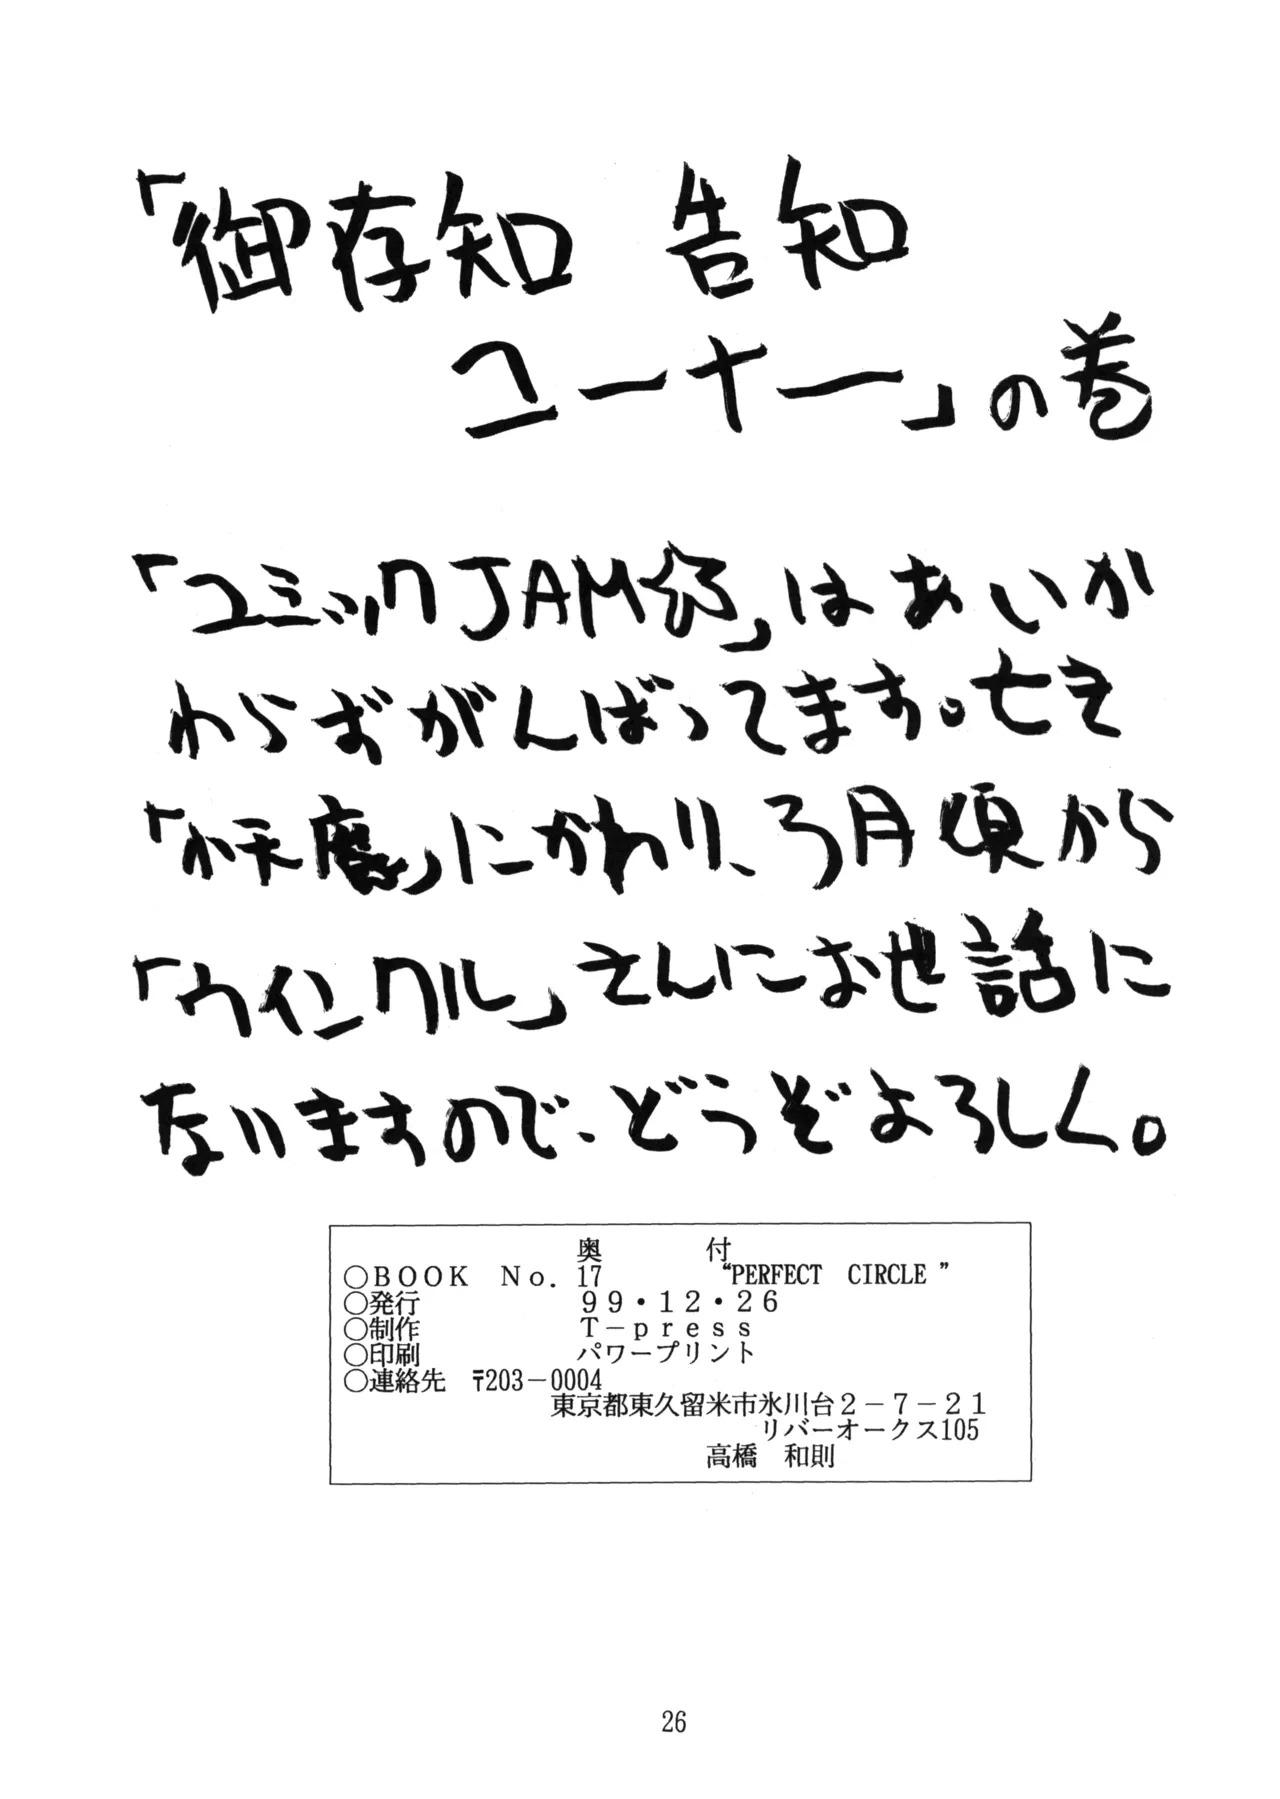 「御存知 告知
コーナー」の巻
「コミックJAM」はあいか
わらずがんばってます。
「魔」にかわり、3月頃から
「ウインクル」さんにお世話に
なりますので、どうぞよろしく。
奥　付
○BOOK No. 17 “PERFECT CIRCLE”
○発行 99・12・26
○制作 T－press
○印刷 パワープリント
○連絡先 〒203－0004
東京都東久留米市氷川台2－7－21
リバーオークス105
高橋 和則
26